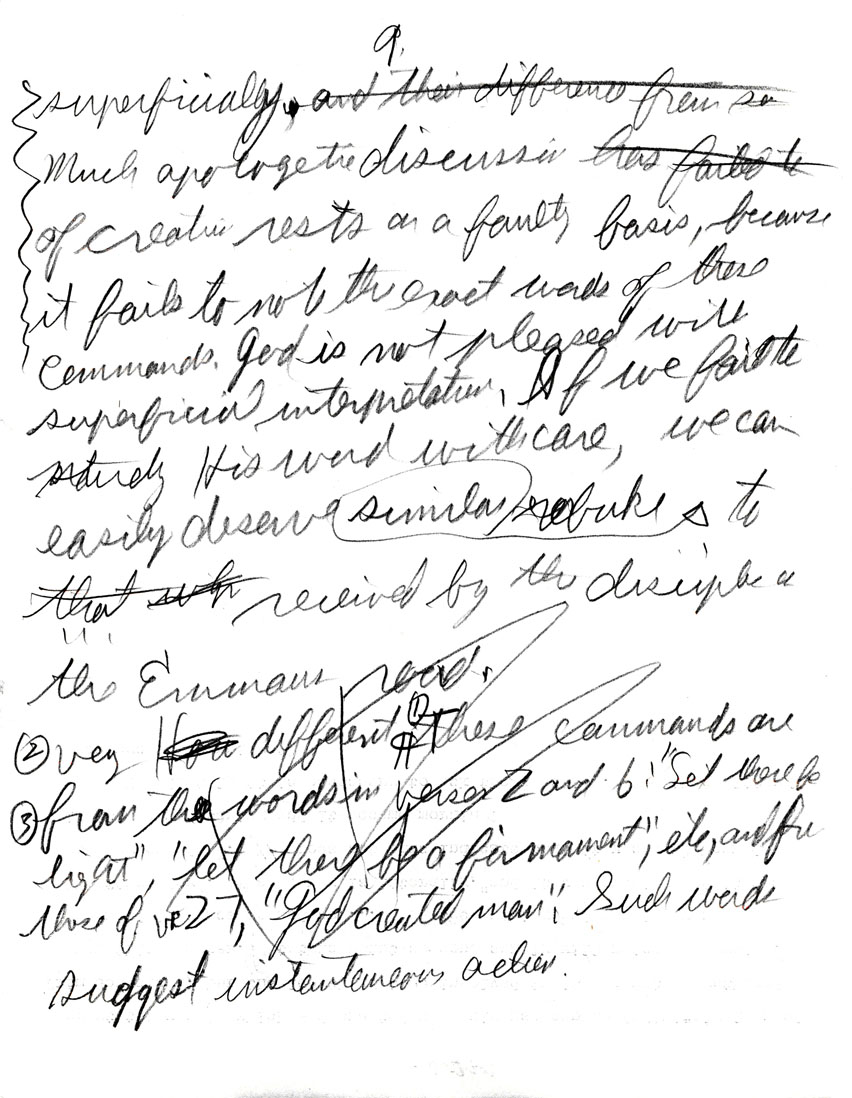 9.
superficially, and their difference from so
Much apologetic discussion has failed to
of creation rests on a faulty basis, because
it fails to note the exact words of these
commands. God is not pleased with
superficial interpretation. If we fail to
study His word with care, we can
easily deserve similar rebukes to
that wh received by the disciples
the Emmaus road.
② very different ① These commands are
③ from the words in verses 2 and 6: "Let there be
light", "let there be a firmament", etc, and fr
those of v 27, "God created man". Such words
suggest instantaneous action.